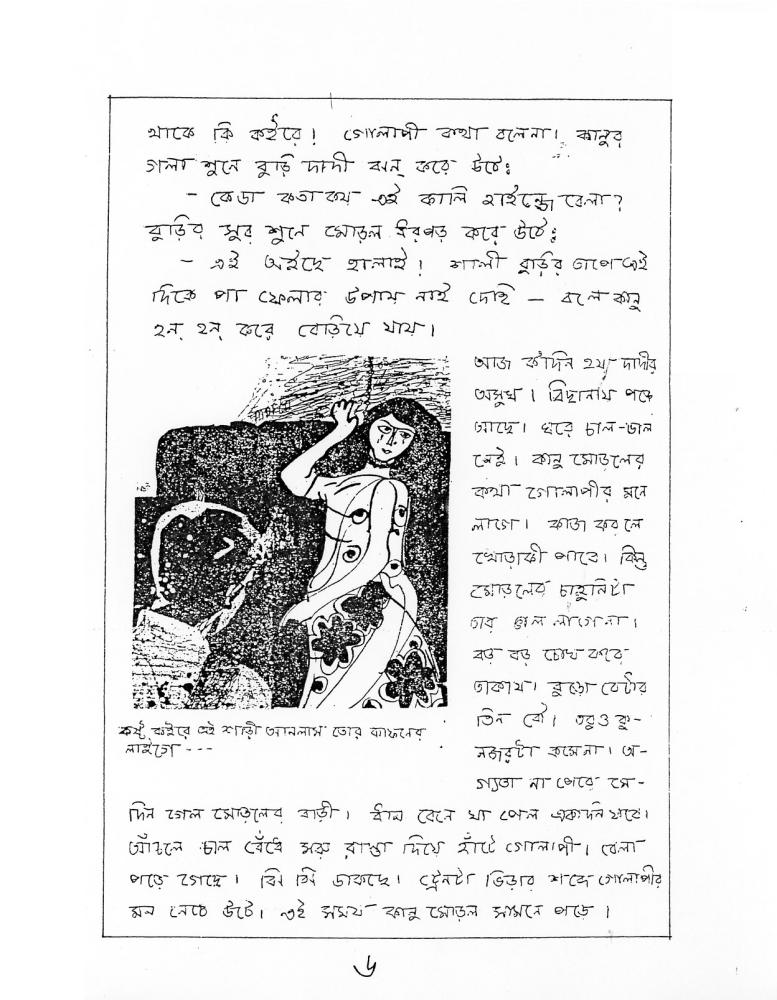 থাকে কি কইরে! গোলাপী কথা বলেনা। কানুর
গলা শুনে বুড়ি দাদী ঝন্ করে উঠে:
- কেডা কতা কয় এই কালি হাইন্জে বেলা?
বুড়ির সুর শুনে মোড়ল ধরপড় করে উঠে:
- এই অইছে হালাই! শালী বুড়ির তাপে এই
দিকে পা ফেলার উপায় নাই দেহি — বলে কানু
হন্ হন্ করে বেড়িয়ে যায়।
আজ ক'দিন হয় দাদীর
অসুখ। বিছানায় পড়ে
আছে। ঘরে চাল-ডাল
নেই। কানু মোড়লের
কথা গোলাপীর মনে
লাগে। কাজ করলে
খোড়াকী পাবে। কিন্তু
মোড়লের চাহুনিটা
তার ভাল লাগেনা।
বড় বড় চোখ করে
তাকায়। বুড়ো বেটার
তিন বৌ। তবুও কু-
নজরটা কমেনা। অ-
গ্যতা না পেরে সে-
কষ্ট কইরে এই শাড়ী আনলাম তোর কাফনের
লাইগে ---
দিন গেল মোড়লের বাড়ী। ধান বেনে যা পেল একদিন হবে।
আঁচলে চাল বেঁধে সরু রাস্তা দিয়ে হাঁটে গোলাপী। বেলা
পড়ে গেছে। ঝিঁ ঝিঁ ডাকছে। ট্রেনটা ভিড়ার শব্দে গোলাপীর
মন নেচে উঠে। এই সময় কানু মোড়ল সামনে পড়ে।
৬